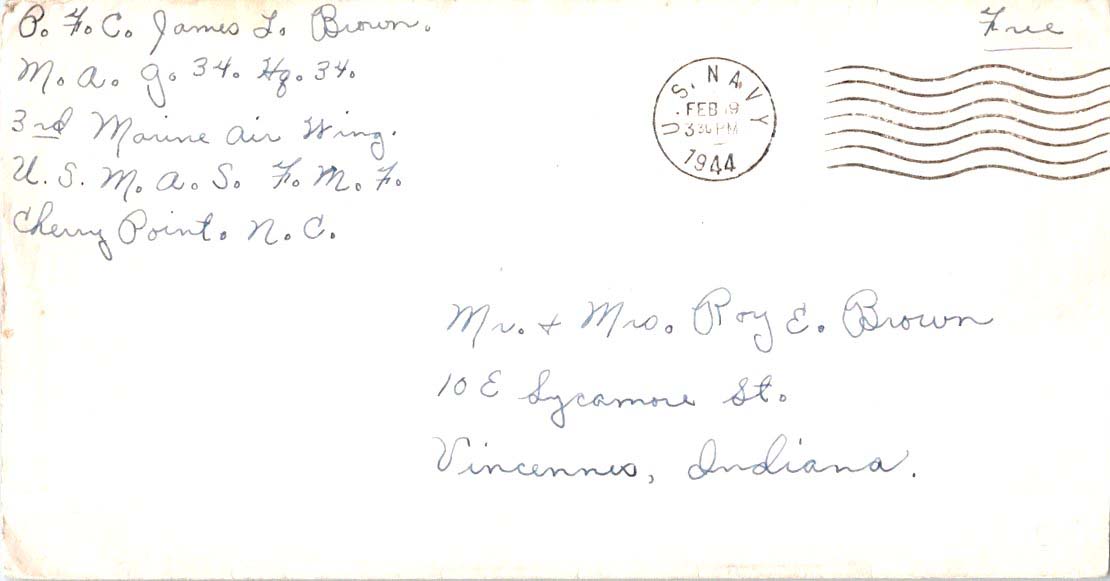 P. F. C. James L. Brown.
M. a. g. 34. Hq. 34.
3rd Marine air Wing.
U. S. M. a. S. F. M. F.
Cherry Point. N. C.
Free
U. S. NAVY
FEB 19
3 30 PM
1944
Mr. + Mrs. Roy E. Brown
10 E Sycamore St.
Vincennes, Indiana.